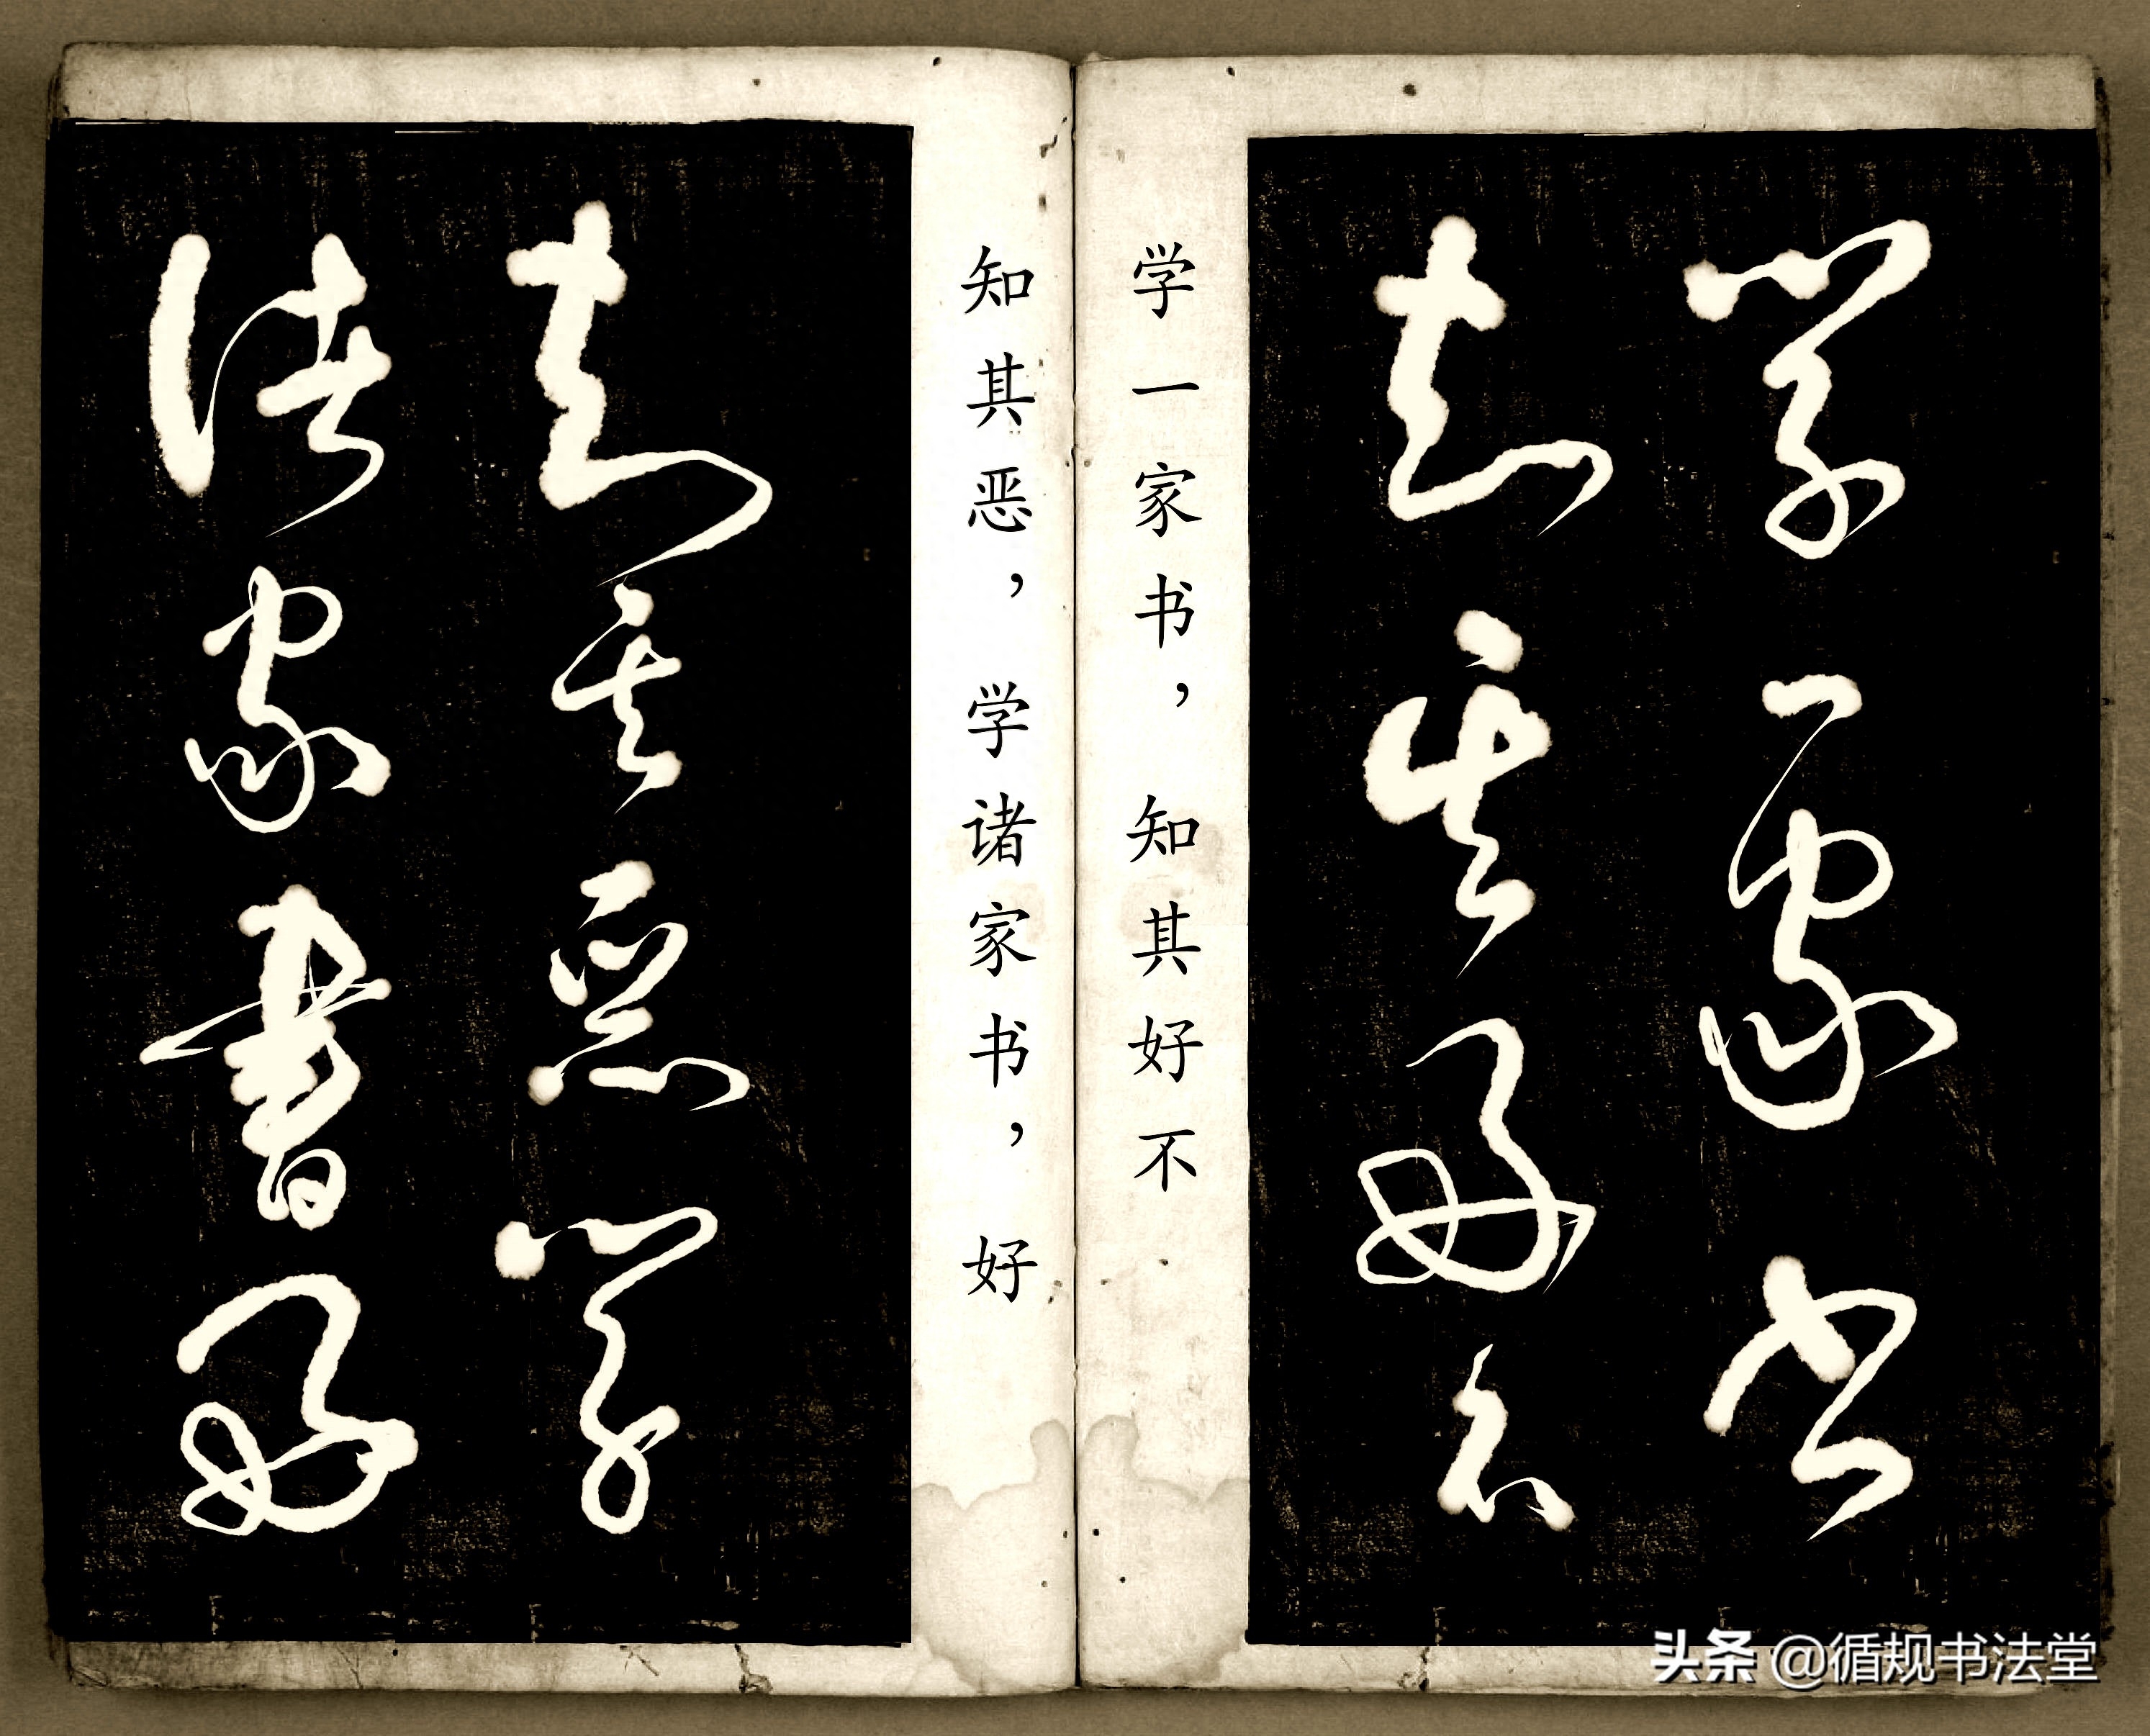 學一家书
知其好不
知其恶學
诸家書好
学一家书，知其好不
知其恶，学诸家书，好
头条 @循规书法堂